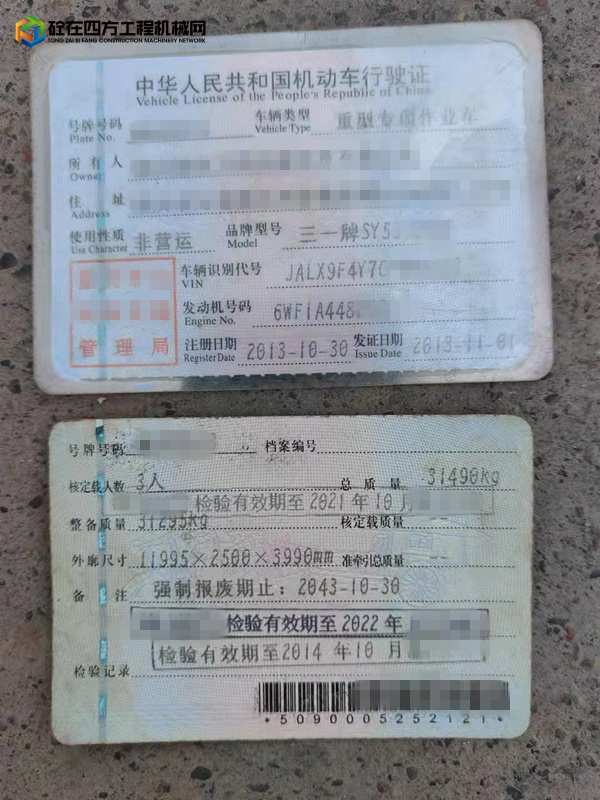 砼在四方工程机械网
TONG ZAI SI FANG CONSTRUCTION MACHINERY NETWORK
中华人民共和国机动车行驶证
Vehicle License of the People's Republic of China
号牌号码 车辆类型 重型专项作业车
Plate No. Vehicle Type
所有人
Owner
住址
Address
使用性质 非营运 品牌型号 三一牌SY5
Use Character Model
车辆识别代号 JALX9F4Y7C
VIN
发动机号码 6WF1A448
Engine No.
管理局
注册日期 2013-10-30 发证日期 2013-11-01
Register Date Issue Date
号牌号码 档案编号
核定载人数 3人 总质量 31490kg
检验有效期至2021年10月
整备质量 31295kg 核定载质量 --
外廓尺寸 11995×2500×3990mm 准牵引总质量 --
备注 强制报废期止：2043-10-30
检验有效期至2022年
检验有效期至2014年10月
检验记录
*5090005252121*